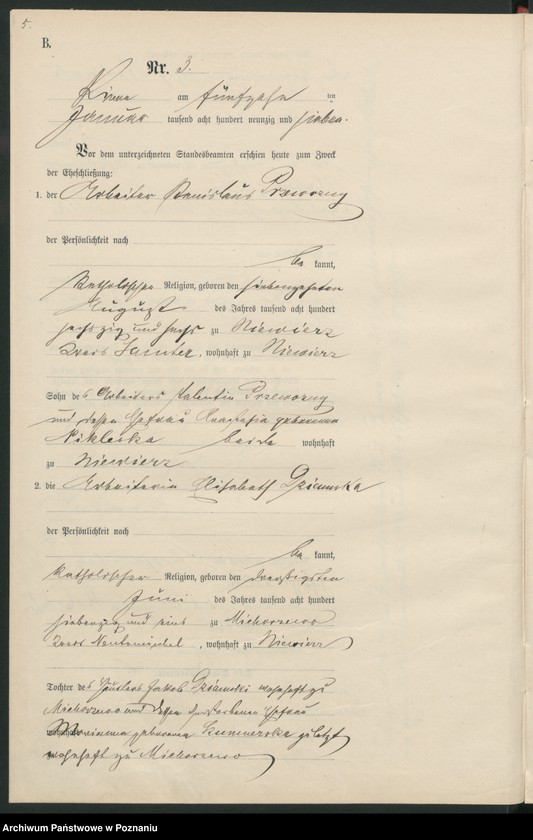 5.
B.
Nr. 3.
am fünfzehn ten
Januar tausend acht hundert neunzig und sieben.
Vor dem unterzeichneten Standesbeamten erschien heute zum Zweck
der Eheschließung:
1. der Arbeiter Stanislaus Przeworny
der Persönlichkeit nach
be kannt,
katholischer Religion, geboren den siebenzehnten
August des Jahres tausend acht hundert
sechszig und sechs zu Niewierz
Kreis Samter, wohnhaft zu Niewierz
Sohn des Arbeiters Valentin Przeworny
und dessen Ehefrau Anastasia geborene
beide wohnhaft
zu Niewierz
2. die Arbeiterin Elisabeth
der Persönlichkeit nach
be kannt,
katholischer Religion, geboren den dreißigsten
Juni des Jahres tausend acht hundert
siebenzig und eins zu Michorzewo
Kreis Neutomischel, wohnhaft zu Niewierz
Tochter des Häuslers Jakob wohnhaft zu
Michorzewo und dessen verstorbenen Ehefrau
geborene zuletzt
wohnhaft zu Michorzewo
Archiwum Państwowe w Poznaniu